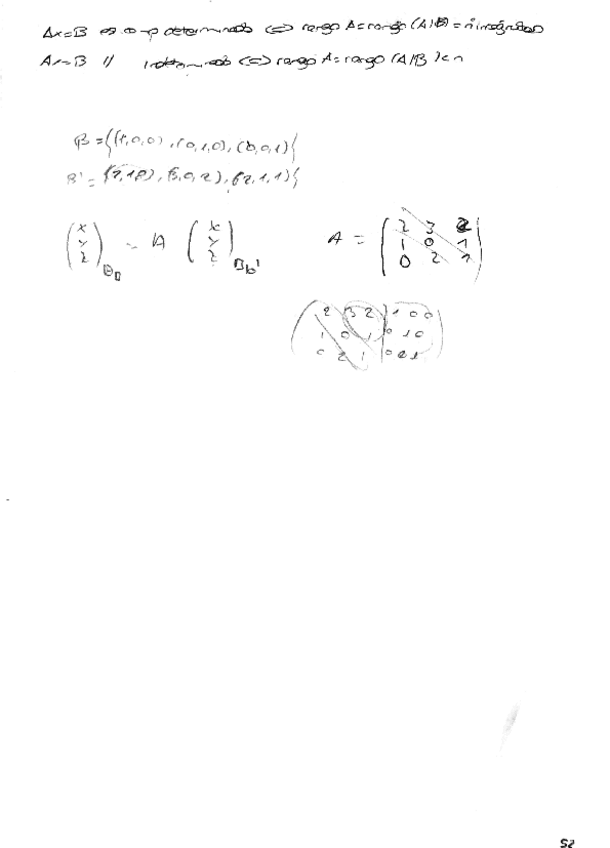 Ax=B es determinado <=> rango A=rango (A|B) = nº incógnitas
Ax=B // indeterminado <=> rango A=rango (A/B) < n
B = {(1,0,0), (0,1,0), (0,0,1)}
B' = {(2,1,0), (3,0,2), (2,1,1)}
(x y z) = A (x y z) B' A = (2 3 2
1 0 1
0 2 1)
(2 3 2 | 1 0 0
1 0 1 | 0 1 0
0 2 1 | 0 0 1)
52